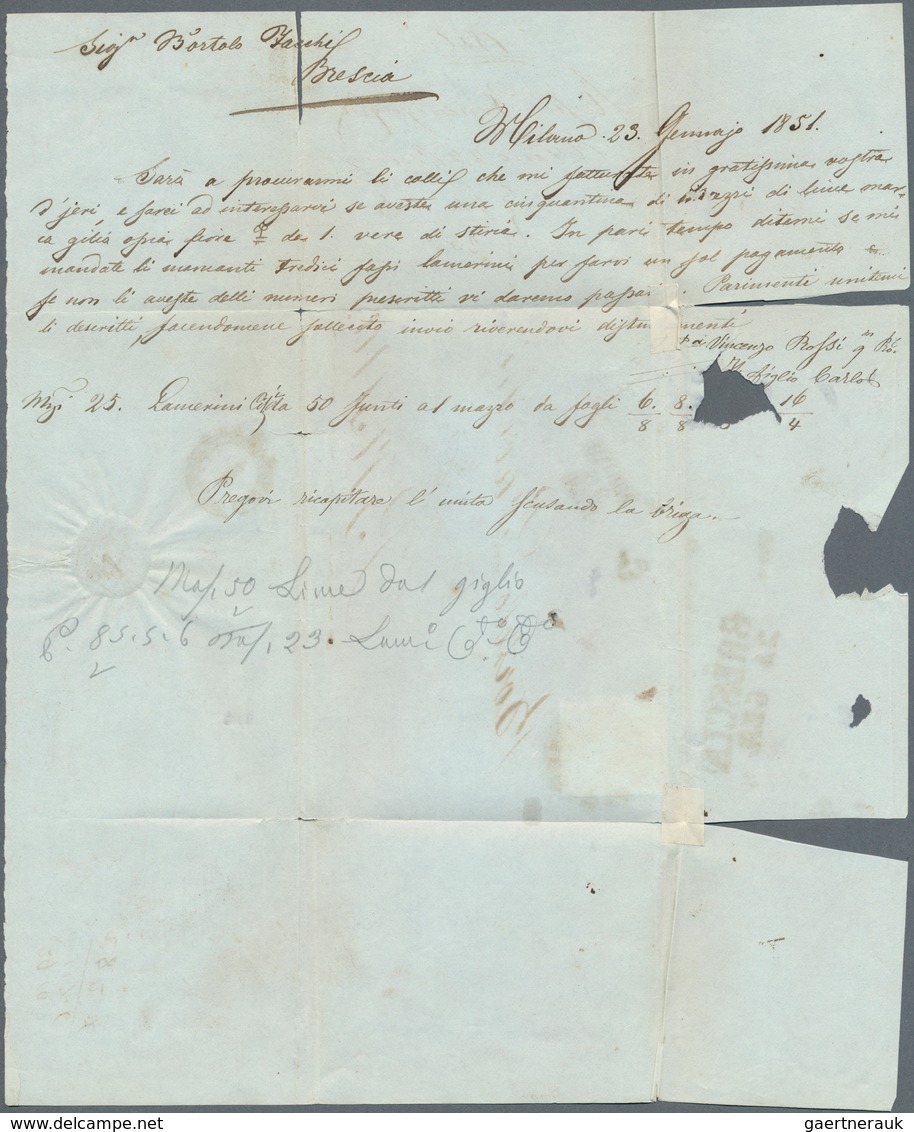 Sigr Bortolo Facchi
Brescia
Milano. 23. Gennajo 1851.
Sarà a procurarmi li colli che mi in gratissima vostra
d'jeri, e farei ad interessarvi se aveste una cinquantina di di lime mar-
ca giliò ossia fiore de 1. vera di stiria. In pari tempo ditemi se mi
mandate li mancanti tredici fassi lamerini per farvi un sol pagamento e
se non li aveste delli numeri prescritti vi daremo Parimenti unitimi
li descritti, facendomene sollecito invio riverendovi
Vincenzo Rossi q
Figlio Carlo
25. Lamerini 50 Junti al mazzo da fogli 6/8 8./8 16/4
Pregovi ricapitare l'unita scusando la briga.
Maz. 50 Lime dal giglio
85.5.6 23. Lami
BRESCIA
24 GEN
gaertnerauk @ delcampe.net